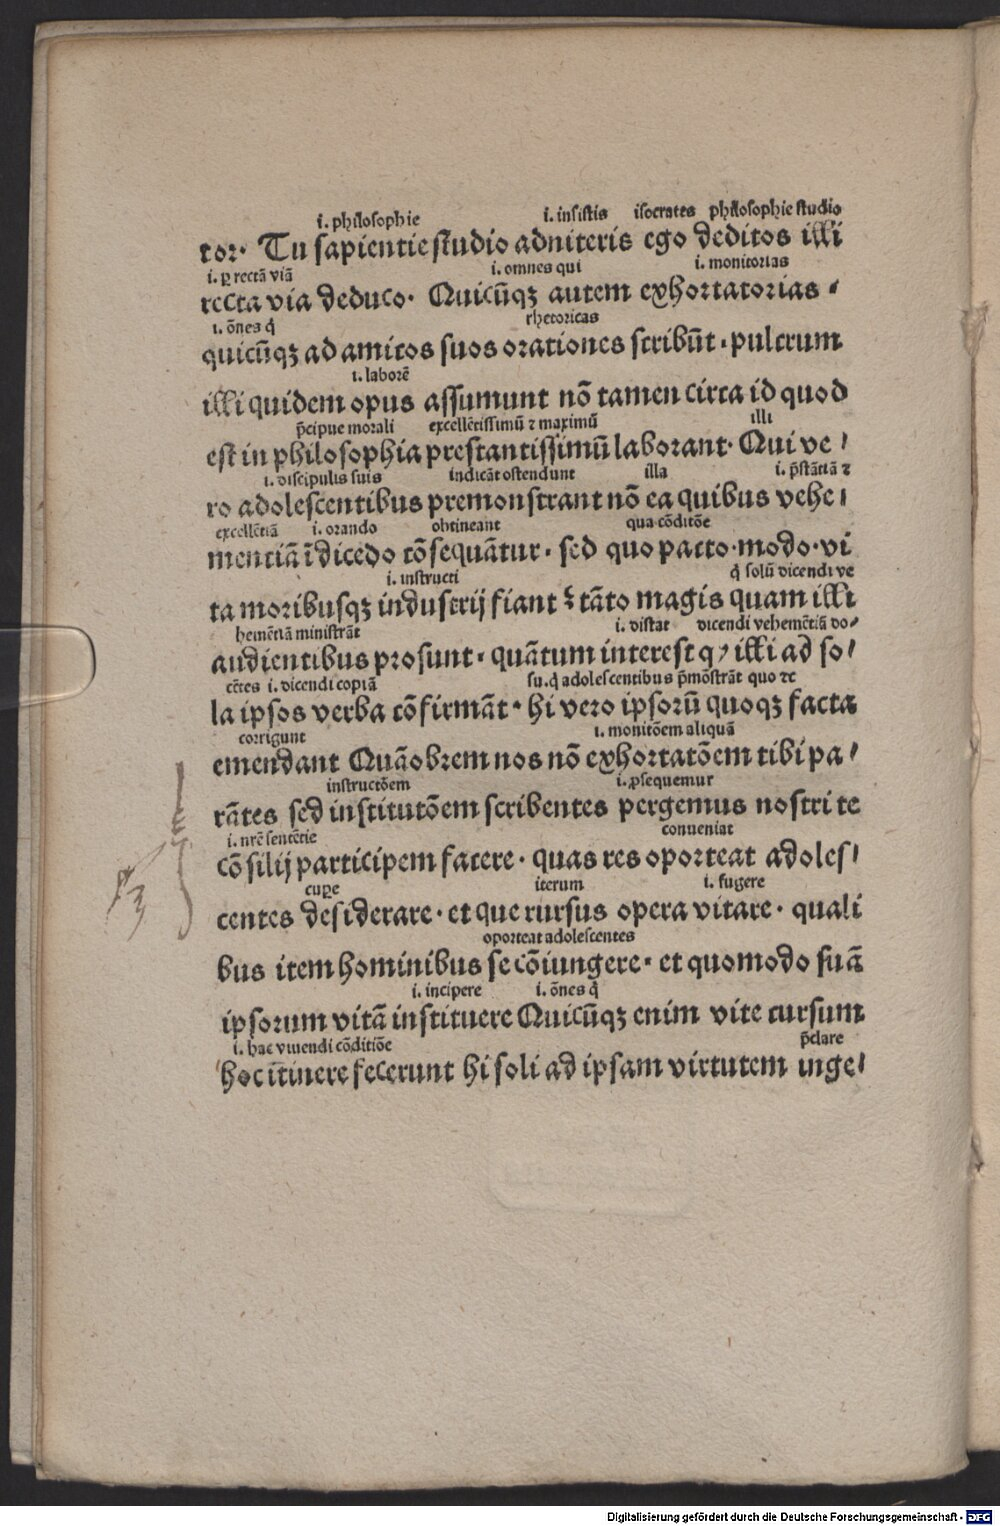 i. philosophie i. insistis isocrates philosophie studio
tor· Tu sapientie studio adniteris ego deditos illi
i. ꝑ rectā viā i. omnes qui i. monitorias
recta via deduco· Quicūqꝫ autem exhortatorias ⸗
i. ōnes q̄ rhetoricas
quicūqꝫ ad amicos suos orationes scribūt · pulcrum
i. laborē
illi quidem opus assumunt nō tamen circa id quod
p̄cipue morali excellētissimū ⁊ maximū illi
est in philosophia prestantissimū laborant· Qui ve⸗
i. discipulis suis indicāt ostendunt illa i. p̄stātiā ⁊
ro adolescentibus premonstrant nō ea quibus vehe⸗
excellētiā i. orando obtineant qua cōditōe
mentiā ī dicēdo cōsequātur · sed quo pacto·modo·vi
i. instructi q̄ solū dicendi ve
ta moribusqꝫ industrij fiant ⁊ tāto magis quam illi
hemētiā ministrāt i. distat dicendi vehemētiā do⸗
audientibus prosunt · quātum interest qꝫ illi ad so⸗
cētes i. dicendi copiā su. q̄ adolescentibus p̄mōstrāt quo ⁊c
la ipsos verba cōfirmāt · hi vero ipsorū quoqꝫ facta
corrigunt i. monitōem aliquā
emendant Quāobrem nos nō exhortatōem tibi pa⸗
instructōem i. ꝓsequemur
rātes sed institutōem scribentes pergemus nostri te
i. nr̄e sentētie conueniat
cōsilij participem facere · quas res oporteat adoles⸗
cuꝑe iterum i. fugere
centes desiderare · et que rursus opera vitare · quali
oporteat adolescentes
bus item hominibus se cōiungere · et quomodo suā
i. incipere i. ōnes q̄
ipsorum vitā instituere Quicūqꝫ enim vite cursum
i. hac viuendi cōditiōe p̄clare
hoc itinere fecerunt hi soli ad ipsam virtutem inge⸗
Digitalisierung gefördert durch die Deutsche Forschungsgemeinschaft - DFG